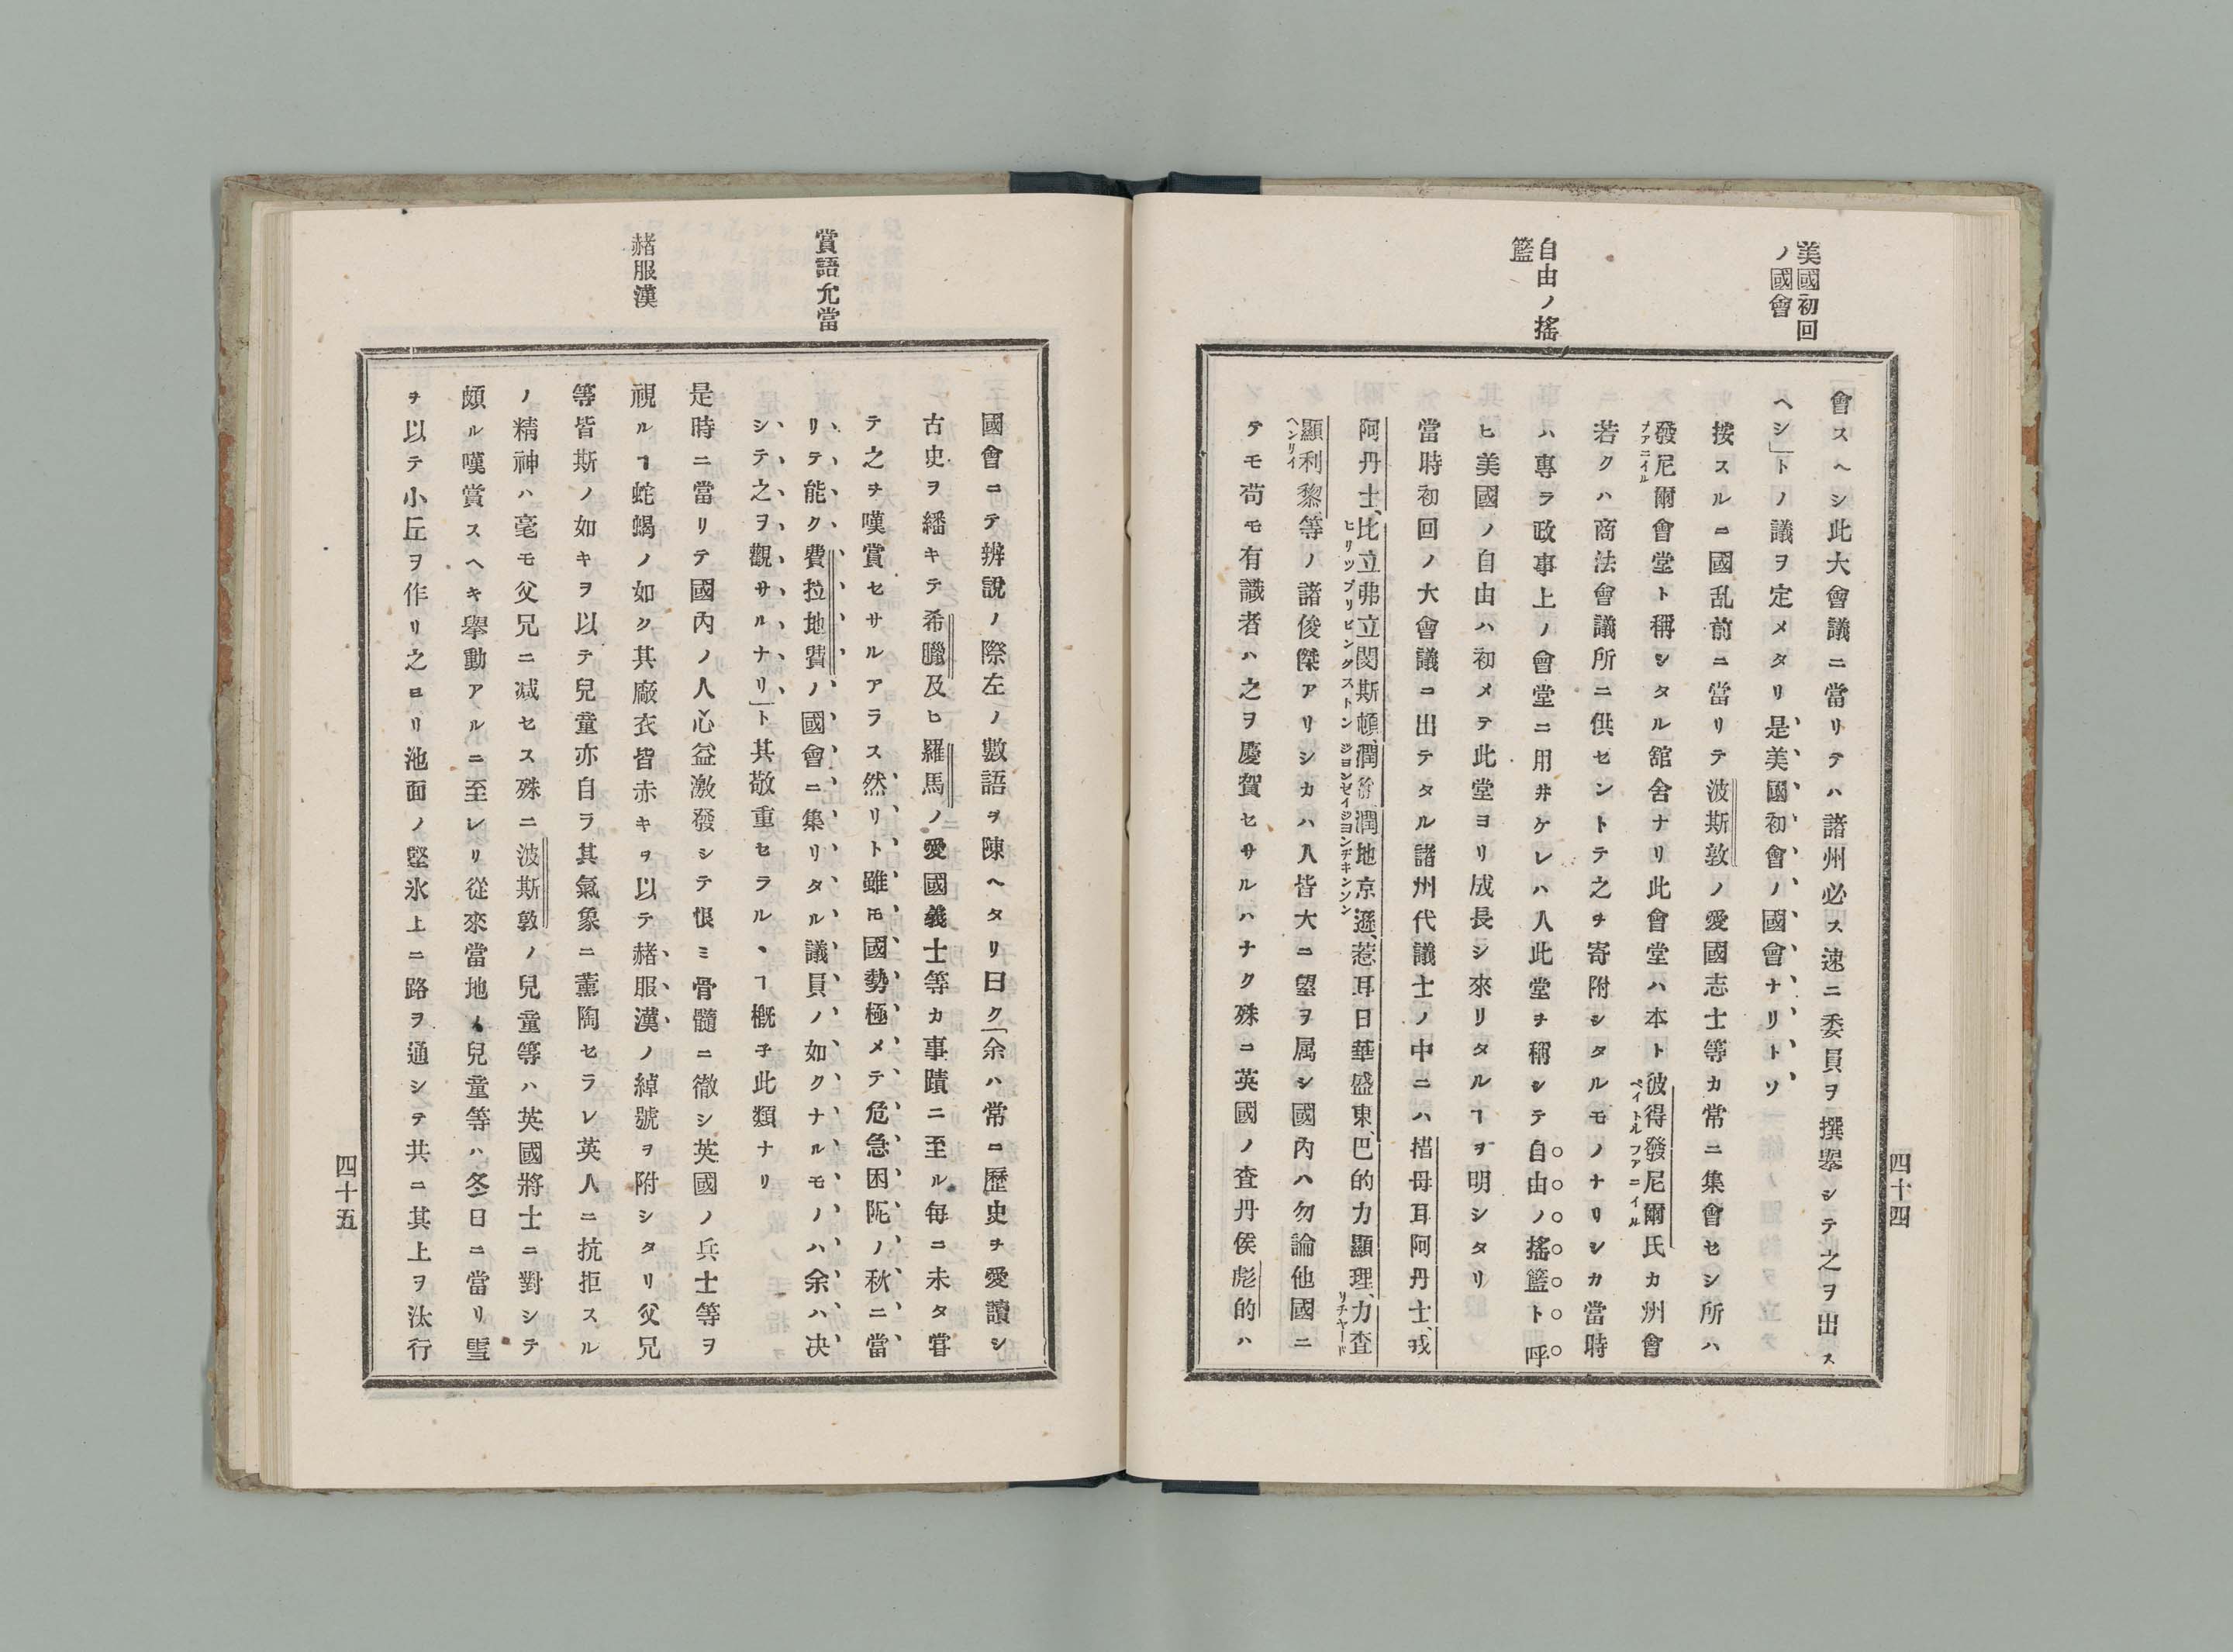 美國初回
ノ國會
自由ノ搖
籃
會スヘシ此大會議ニ當リテハ諸州必ス速ニ委員ヲ撰擧シテ之ヲ出ス
ヘシ」トノ議ヲ定メタリ是美國初會ノ國會ナリトソ
按スルニ國乱前ニ當リテ波斯敦ノ愛國志士等カ常ニ集會セシ所ハ
發尼爾會堂ト稱シタル舘舍ナリ此會堂ハ本ト彼得發尼爾氏カ州會
ファニイル
ペイトルファニイル
若クハ商法會議所ニ供セントテ之ヲ寄附シタルモノナリシカ當時
ハ專ラ政事上ノ會堂ニ用井ケレハ人此堂ヲ稱シテ自由ノ搖籃ト呼
ヒ美國ノ自由ハ初メテ此堂ヨリ成長シ來リタルヿヲ明シタリ
當時初回ノ大會議ニ出テタル諸州代議士ノ中ニハ撒母耳阿丹士、戎
阿丹士、比立弗立閔斯頓、潤 潤地京遜、惹耳日華盛東、巴的力顯理、力査
ヒリップリビングストン
ジョンゼイ
ジョンヂキンソン
リチャード
顯利黎等ノ諸俊傑アリシカハ人皆大ニ望ヲ属シ國内ハ勿論他國ニ
ヘンリイ
テモ苟モ有識者ハ之ヲ慶賀セサルハナク殊ニ英國ノ査丹侯彪的ハ
四十四
賞語允當
赭服漢
國會ニテ辨說ノ際左ノ數語ヲ陳ヘタリ曰ク「余ハ常ニ歷史ヲ愛讀シ
古史ヲ繙キテ希臘及ヒ羅馬ノ愛國義士等カ事蹟ニ至ル每ニ未タ甞
テ之ヲ嘆賞セサルアラス然リト雖モ國勢極メテ危急困阨ノ秋ニ當
リテ能ク費拉地費ノ國會ニ集リタル議員ノ如クナルモノハ余ハ决
シテ之ヲ觀サルナリ」ト其敬重セラルヽヿ概子此類ナリ
是時ニ當リテ國內ノ人心益激發シテ恨ミ骨髓ニ徹シ英國ノ兵士等ヲ
視ルヿ蛇蝎ノ如ク其廠衣皆赤キヲ以テ赭服漢ノ綽號ヲ附シタリ父兄
等皆斯ノ如キヲ以テ兒童亦自ラ其氣象ニ薰陶セラレ英人ニ抗拒スル
ノ精神ハ毫モ父兄ニ减セス殊ニ波斯敦ノ兒童等ハ英國將士ニ對シテ
頗ル嘆賞スヘキ擧動アルニ至レリ從來當地ノ兒童等ハ冬日ニ當リ雪
ヲ以テ小丘ヲ作リ之ヨリ池面ノ堅氷上ニ路ヲ通シテ共ニ其上ヲ汰行
四十五